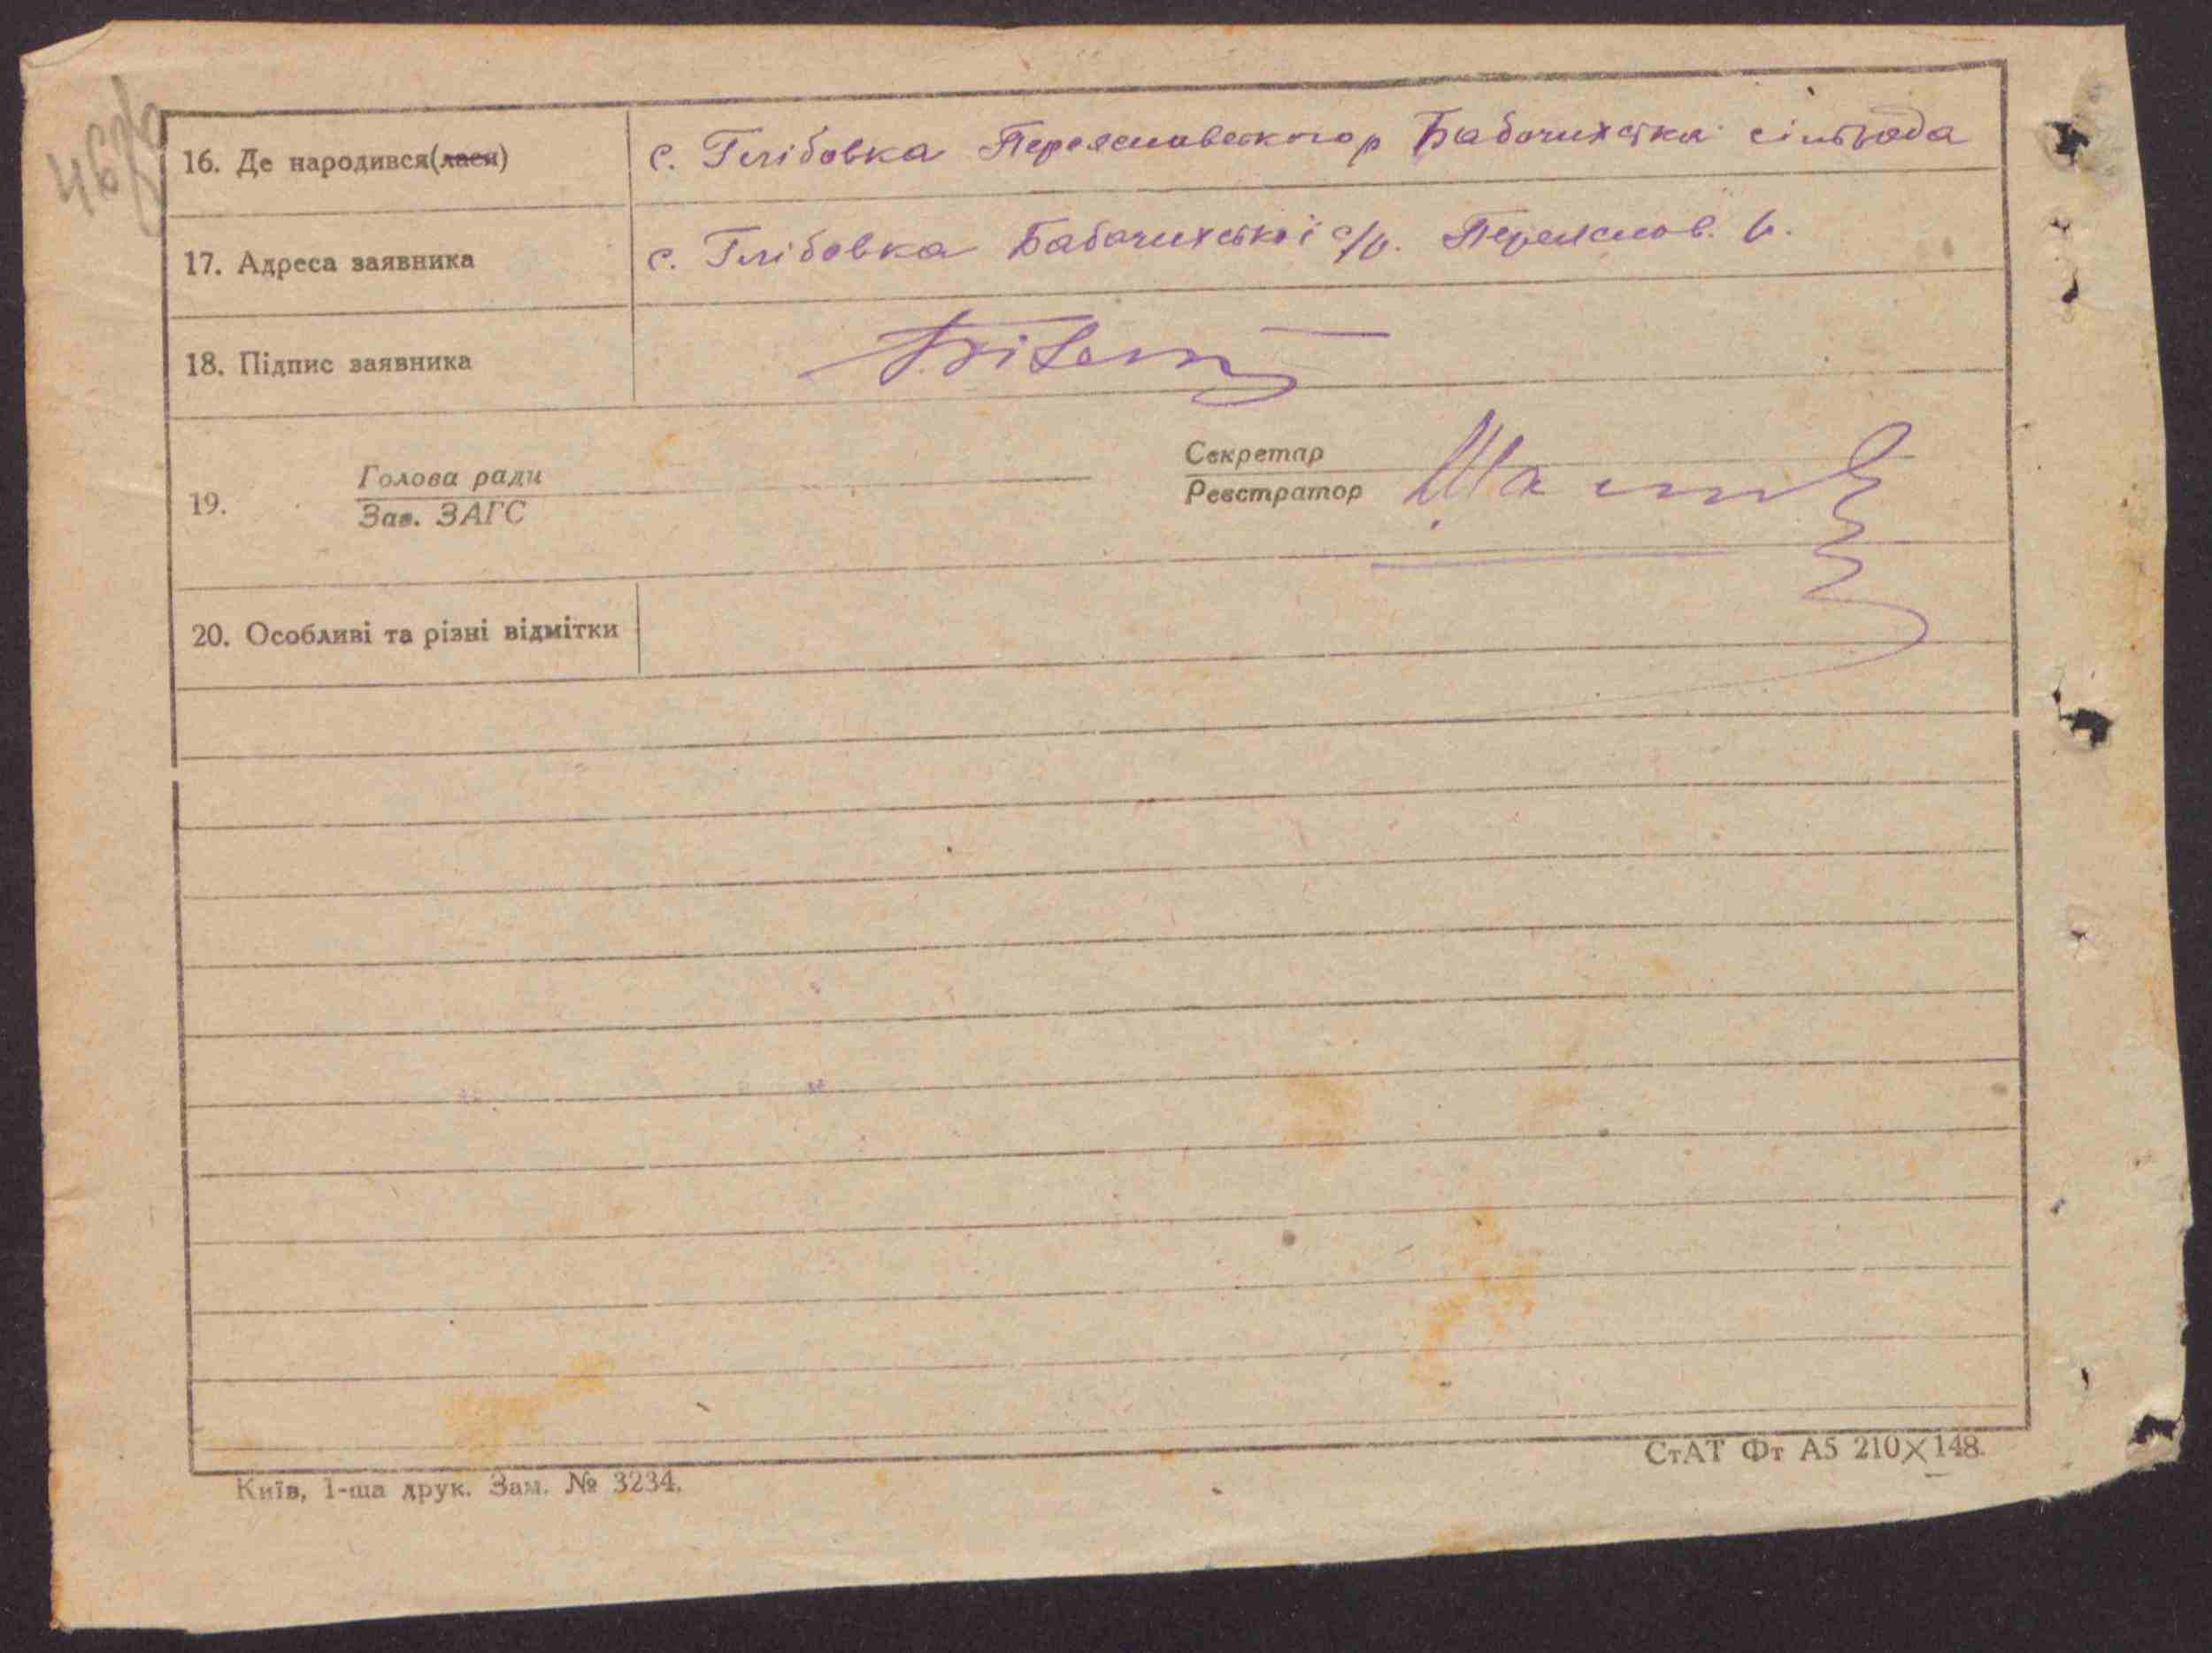 16. Де народився(лася) с. Глібовка Переяславського р Бабачихска сільрада
17. Адреса заявника с. Глібовка Бабачихської с/р. Переяслов. р.
18. Підпис заявника
19. Голова ради
Зав. ЗАГС
Секретар
Реєстратор
20. Особливі та різні відмітки
СтАТ Фт А5 210×148.
Київ, 1-ша друк. Зам. № 3234.